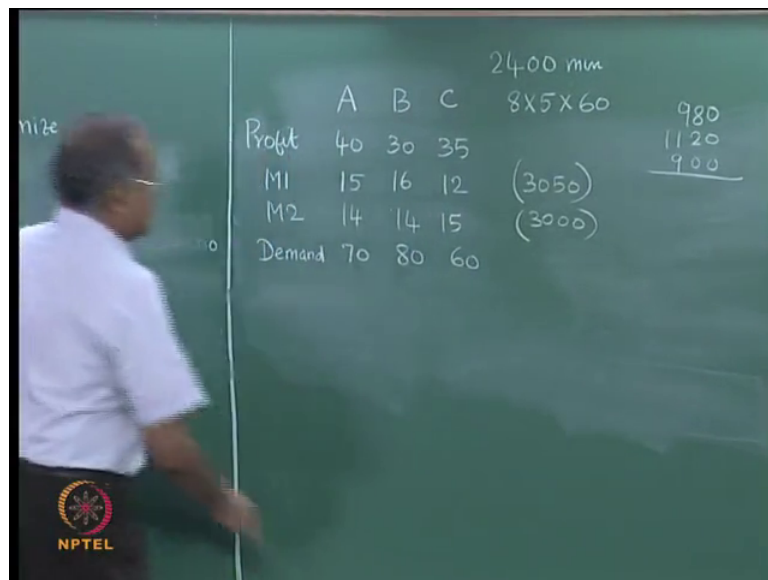 2400 min
A B C 8X5X60
nize
Profit 40 30 35
M1 15 16 12 (3050)
M2 14 14 15 (3000)
Demand 70 80 60
980
1120
900
NPTEL